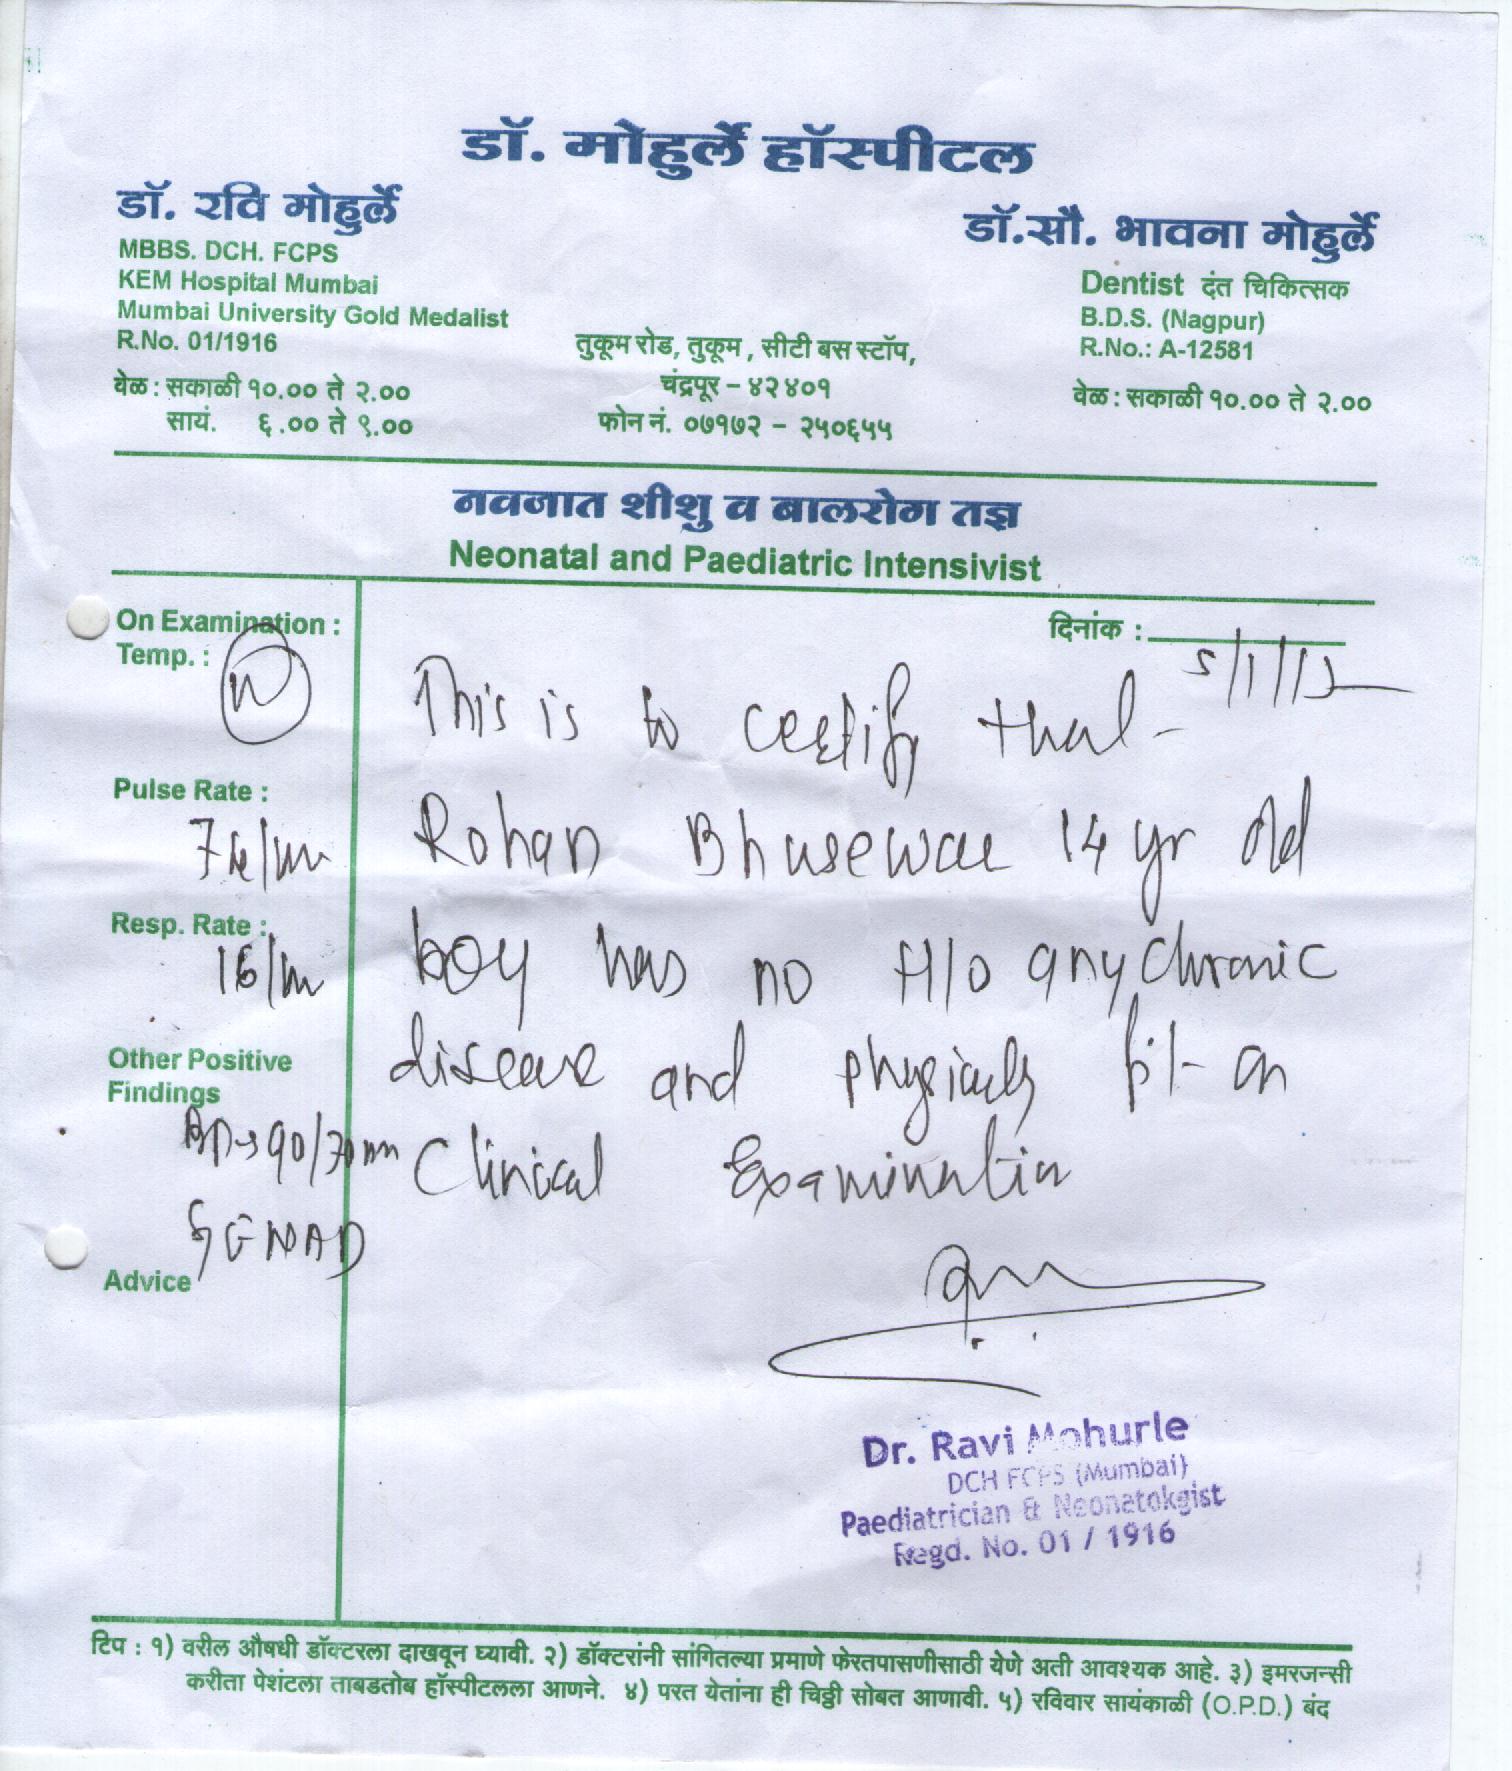 डॉ. मोहुर्ले हॉस्पीटल
डॉ. रवि मोहुर्ले
MBBS. DCH. FCPS
KEM Hospital Mumbai
Mumbai University Gold Medalist
R.No. 01/1916
वेळ : सकाळी १०.०० ते २.००
सायं. ६.०० ते ९.००
तुकूम रोड, तुकूम , सीटी बस स्टॉप,
चंद्रपूर - ४२४०१
फोन नं. ०७१७२ - २५०६५५
डॉ.सौ. भावना मोहुर्ले
Dentist दंत चिकित्सक
B.D.S. (Nagpur)
R.No.: A-12581
वेळ : सकाळी १०.०० ते २.००
नवजात शीशु व बालरोग तज्ञ
Neonatal and Paediatric Intensivist
On Examination :
Temp. : N
Pulse Rate :
Resp. Rate :
16/m
Other Positive
Findings
BP→90/70mm
SENAD
Advice
दिनांक :
5/1/12
This is to certify that
Rohan Bhusewar 14 yr old
boy has no H/o any chronic
disease and physically fit on
Clinical Examination
Dr. Ravi Mohurle
DCH FCPS (Mumbai)
Paediatrician & Neonatokgist
Regd. No. 01 / 1916
टिप : १) वरील औषधी डॉक्टरला दाखवून घ्यावी. २) डॉक्टरांनी सांगितल्या प्रमाणे फेरतपासणीसाठी येणे अती आवश्यक आहे. ३) इमरजन्सी
करीता पेशंटला ताबडतोब हॉस्पीटलला आणने. ४) परत येतांना ही चिठ्ठी सोबत आणावी. ५) रविवार सायंकाळी (O.P.D.) बंद